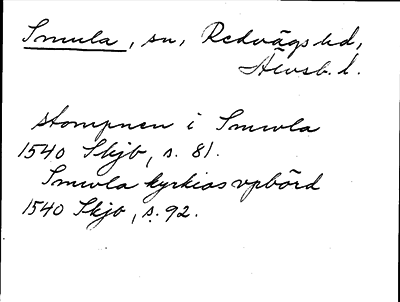 Smula, sn, Redvägs hd,
Älvsb. l.
stompnen i Smwla
1540 Skjb, s. 81.
Smwla kyrkios vpbörd
1540 Skjb, s. 92.